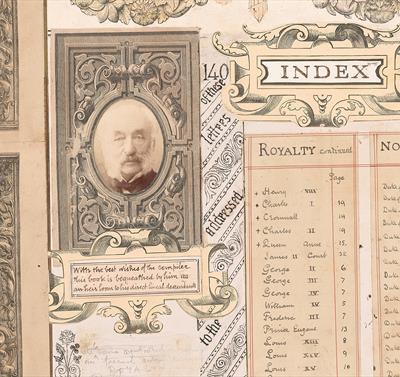 140
of these
letters
addressed
to the
INDEX
With the best wishes of the compiler
this book is bequeathed by him as
an heir loom to his direct lineal descendants
ROYALTY continued
Page
+ Henry VIII
+ Charles I 19
+ Cromwell 14
+ Charles II 19
+ Queen Anne 15.
James II Court 32
George II 6
George III 7
George IV 7
William IV 5
Frederic III 7
Prince Eugene 13
Louis XIII 8
Louis XIV 9
Louis XV 10
NO
Duke of